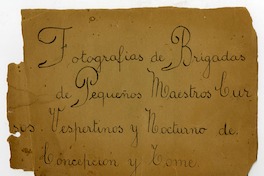 Fotografias de Brigadas
de Pequeños Maestros Cur
sos Vespertinos y Nocturno de
Concepcion y Tome